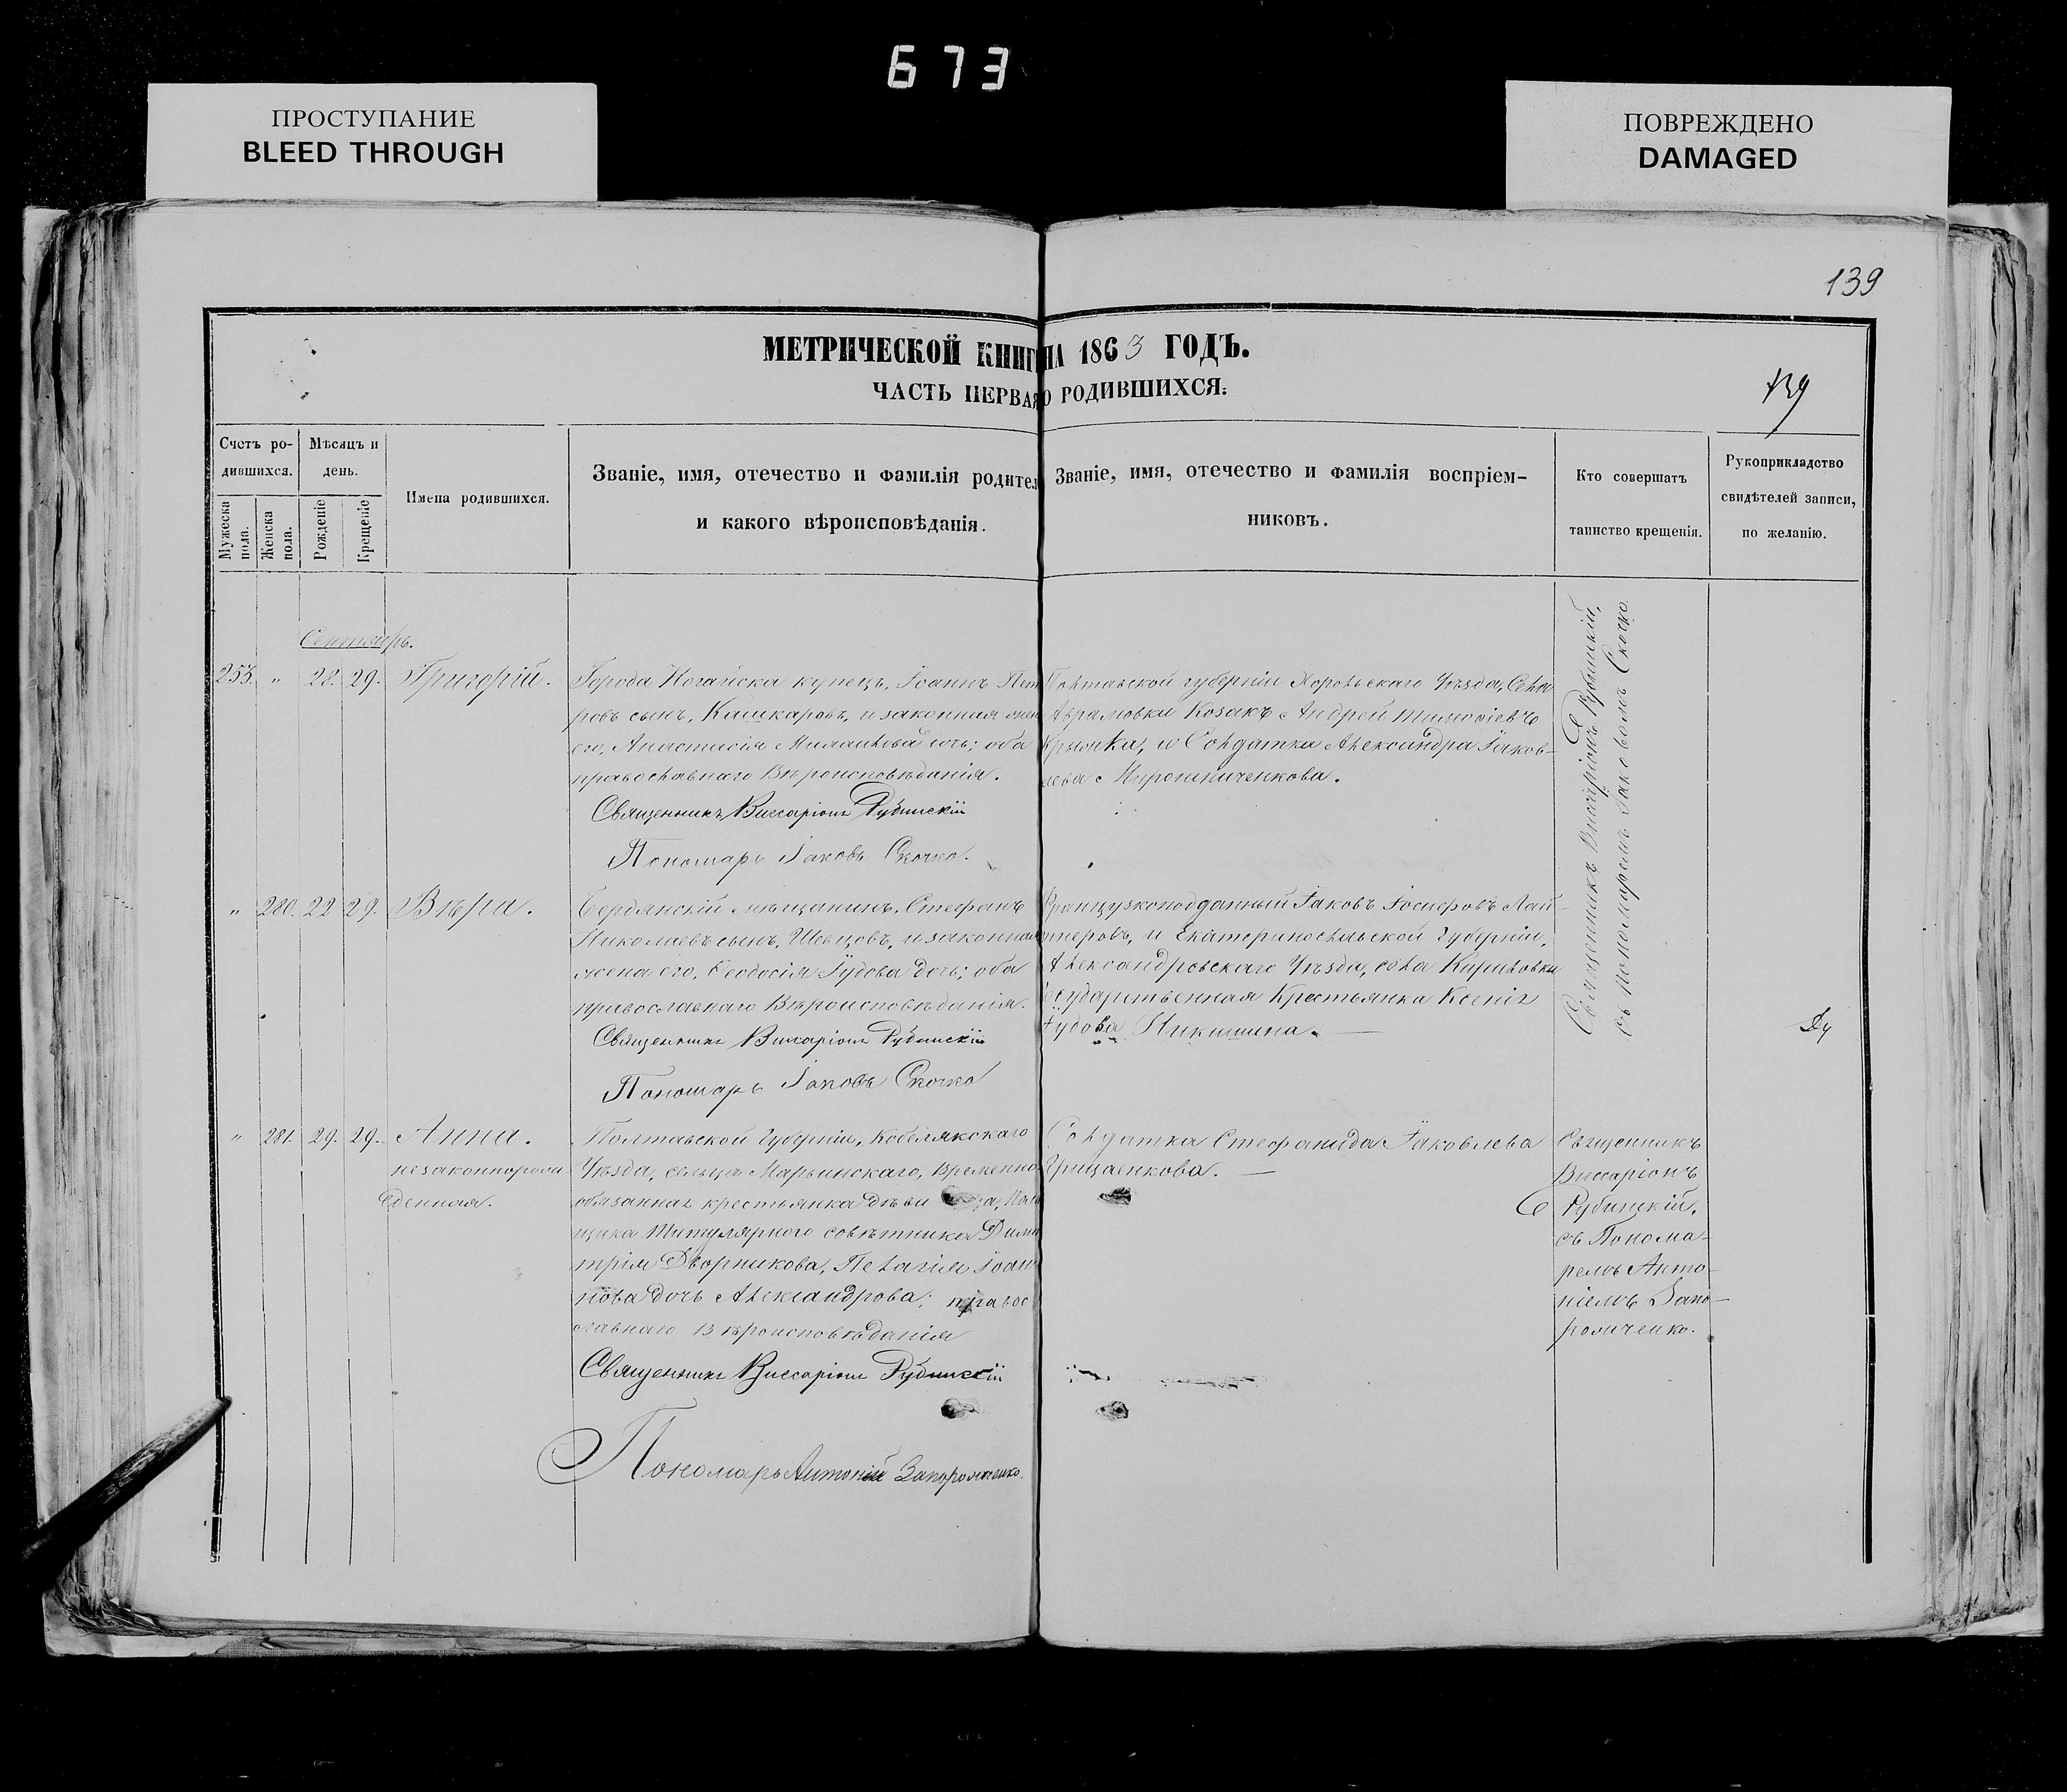 673
ПРОСТУПАНИЕ
BLEED THROUGH
ПОВРЕЖДЕНО
DAMAGED
139
МЕТРИЧЕСКОЙ КНИГ НА 1863 ГОДЪ.
ЧАСТЬ ПЕРВАЯ О РОДИВШИХСЯ:
139
Счетъ ро-
дившихся.
Мужеска пола.
Женска пола.
Мѣсяцъ и
день.
Рожденіе
Крещеніе
Имена родившихся.
Званіе, имя, отечество и фамилія родител
и какого вѣроисповѣданія.
Званіе, имя, отечество и фамилія воспріем-
никовъ.
Кто совершатъ
таинство крещенія.
Рукоприкладство
свидѣтелей записи,
по желанію.
Сентябрь.
253. " 28. 29. Григорій.
Города Ногайска купецъ, Іоаннъ Пет
ровъ сынъ, Кашкаровъ, и законная жен
его, Анастасія дочь; оба
православнаго Вѣроисповѣданія.
Священникъ Виссаріонъ Рубинскій
Пономарь Іаковъ Скочко.
Полтавской губерніи Хорольскаго Уѣзда, Села
Аврамовки Козакъ Андрей Тимофіевъ
и Солдатка Александра Іаков-
лева Мирошниченкова.
Священникъ Виссаріонъ Рубинскій,
съ пономаремъ Іаковомъ Скочко.
" 280. 22 29. Вѣра.
Бердянскій мѣщанинъ, Стефанъ
Николаевъ сынъ, Шевцовъ, и законная
жена его, Феодосія Іудова дочь; оба
православнаго Вѣроисповѣданія.
Священникъ Виссаріонъ Рубинскій
Пономарь Іаковъ Скочко
Французскоподданный Іаковъ Іосифовъ Лай-
неровъ, и Екатеринославской Губерніи,
Александровскаго Уѣзда, села Кириловки
Государственная Крестьянка Ксенія
Іудова Никишина.
" 281. 29. 29. Анна.
незаконнорож-
денная.
Полтавской Губерніи, Кобелякскаго
Уѣзда, сельца Марьинскаго, Временно
обязанная крестьянка дѣви ца, Пом
щика Титулярного совѣтника Дими
трія Дворникова, Пелагія Іоан
нова дочь Александрова; правос
лавнаго Вѣроисповѣданія
Священникъ Виссаріонъ Рубинскій
Пономарь Антоній Запорожченко.
Солдатка Стефанида Іаковлева
Грищаенкова.
Священникъ
Виссаріонъ
Рубинскій,
съ Понома-
ремъ Анто-
ніемъ Запо-
рожченко.